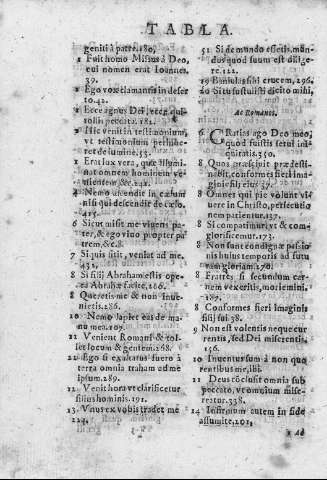 TABLA.
geniti à patre. 180.
1 Fuit homo Missus à Deo,
cui nomen erat Ioannes.
39.
1 Ego vox clamantis in deser
to. 42.
1 Ecce agnus Dei, ecce qui
tollis peccata. 181.
1 Hic venit in testimonium,
vt testimonium perhibe-
ret de lumine, 53.
1 Erat lux vera, quæ illumi
nat omnem hominem ve-
nientem &c. 241.
Nemo ascendit in cælum
nisi qui descendit de cælo.
415.
6 Sicut misit me viuens pa-
ter, & ego viuo propter pa
trem, & c. 8.
7 Si quis sitit, veniat ad me.
431,
8 Si filij Abrahæ estis ope-
ra Abrahæ facite. 286.
8 Queretis me & non inue-
nietis. 286.
10 Nemo rapiet eas de ma-
nu mea. 107.
11 Venient Romani & tol-
let locum & gentem. 268.
22 Ego si exaltatus fuero à
terra omnia traham ad me
ipsum. 289.
12 Venit hora vt clarificetur
filius hominis. 191.
13 Vnus ex vobis tradet me
224.
51 Si de mundo essetis, mun-
dus quod suum est dilige-
re. 122.
19 Baiulans sibi crucem, 296.
20 Si tu sustulisti dicito mihi,
Ad Romanos.
6 Gratias ago Deo meo,
quod fuistis serui ini-
quitatis. 350.
8 Quos præsciuit præ desti-
nabit, conformes fieri imagi-
inis filij eius. 37.
8 Omnes qui pie volunt viue-
re in Christo, persecutio
nem patientur. 137.
8 Si compatimur, vt & com-
glorificemur. 173.
8 Non sunt condignæ passio
nis huius temporis ad futu
ram gloriam. 70.
8 Fratres si secundum car-
nem vexeritis, moriemini.
187.
8 Conformes fieri Imaginis
filij sui. 38.
9 Non est volentis neque cur
rentis, sed Dei miserentis.
156.
10 Inuentus sum à non quæ
rentibus me, 181.
11 Deus cõclusit omnia sub
peccato, vt omnium mise-
reatur. 338.
14 Infirmum autem in fide
assumite, 201,
1 Ad